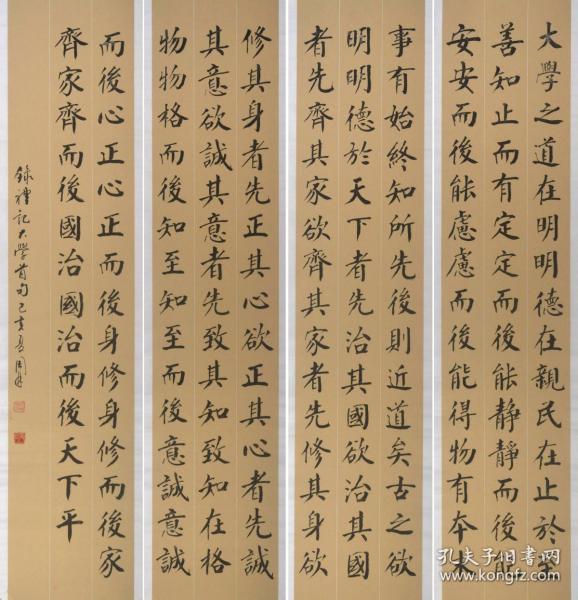 大學之道在明明德在親民在止於至
善知止而有定定而後能靜靜而後能
安安而後能慮慮而後能得物有本末
事有始終知所先後則近道矣古之欲
明明德於天下者先治其國欲治其國
者先齊其家欲齊其家者先修其身欲
修其身者先正其心欲正其心者先誠
其意欲誠其意者先致其知致知在格
物物格而後知至知至而後意誠意誠
而後心正心正而後身修身修而後家
齊家齊而後國治國治而後天下平
錄禮記大學首句己亥夏周
孔夫子旧书网
www.kongfz.com